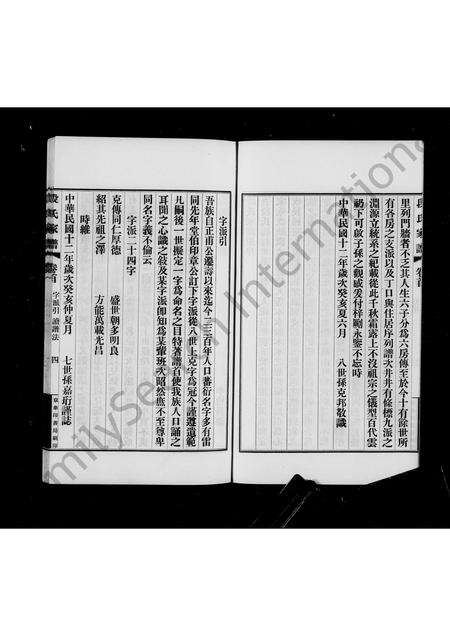 里列門牆者不乏其人生六子分為六房傳至於今十有餘世所
有各房之支派以及丁口與住居序列譜次井井有條標九派之
淵源立統系之紀載從此千秋霜露上不沒祖宗之儀型百代雲
礽下可啟子孫之觀感爰付梓劂永鑒不忘時
中華民國十二年歲次癸亥六月 八世孫克邦敬識
字派引
吾族自正甫公遷壽以來迄今二三百年人口蕃衍名字多有雷
同先年堂伯印章公訂下字派從八世上克字為冠今謹遵遺範
凡嗣後一世擬定一字為命名之目特著譜首使我族人口誦之
耳聞之心識之敍及某字派即知為某輩班次昭然應不至尊卑
同名字義不倫云
字派二十四字
克傳同仁厚德 盛世朝多明良
紹其先祖之澤 方能萬載光昌
時維
中華民國十二年歲次癸亥仲夏月 七世孫嘉珩謹誌
段氏家譜 卷首 字派引 譜法 四
段氏家譜 卷首
FamilySearch International